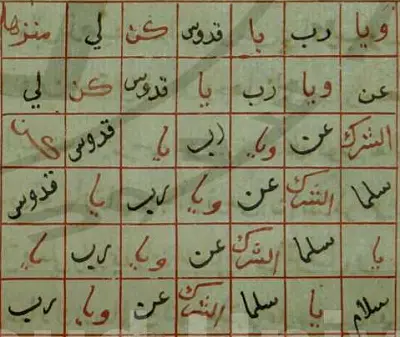 ويا رب يا قدوس كن لي منزها
عن ويا رب يا قدوس كن لي
الشرك عن ويا رب يا قدوس
سلما الشرك عن ويا رب يا قدوس
يا سلما الشرك عن ويا رب يا
سلام يا سلما الشرك عن ويا رب